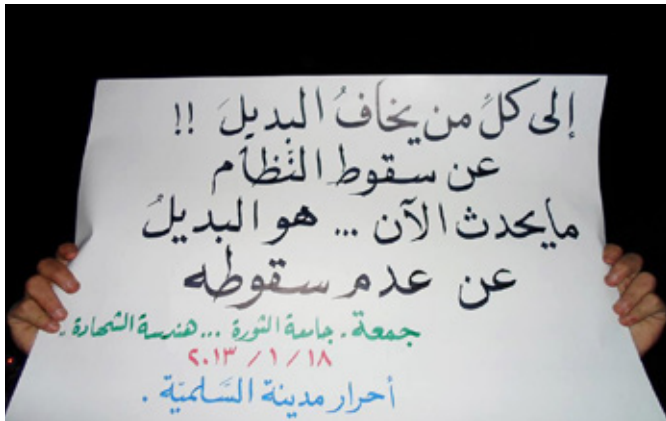 إلى كلِّ من يخافُ البديلَ !!
عن سقوط النّظام
مايحدث الآن ... هو البديلُ
عن عدم سقوطه
جمعة . جامعة الثورة ... هندسة الشهادة .
٢٠١٣ / ١ / ١٨
أحرار مدينة السَّلميّة .